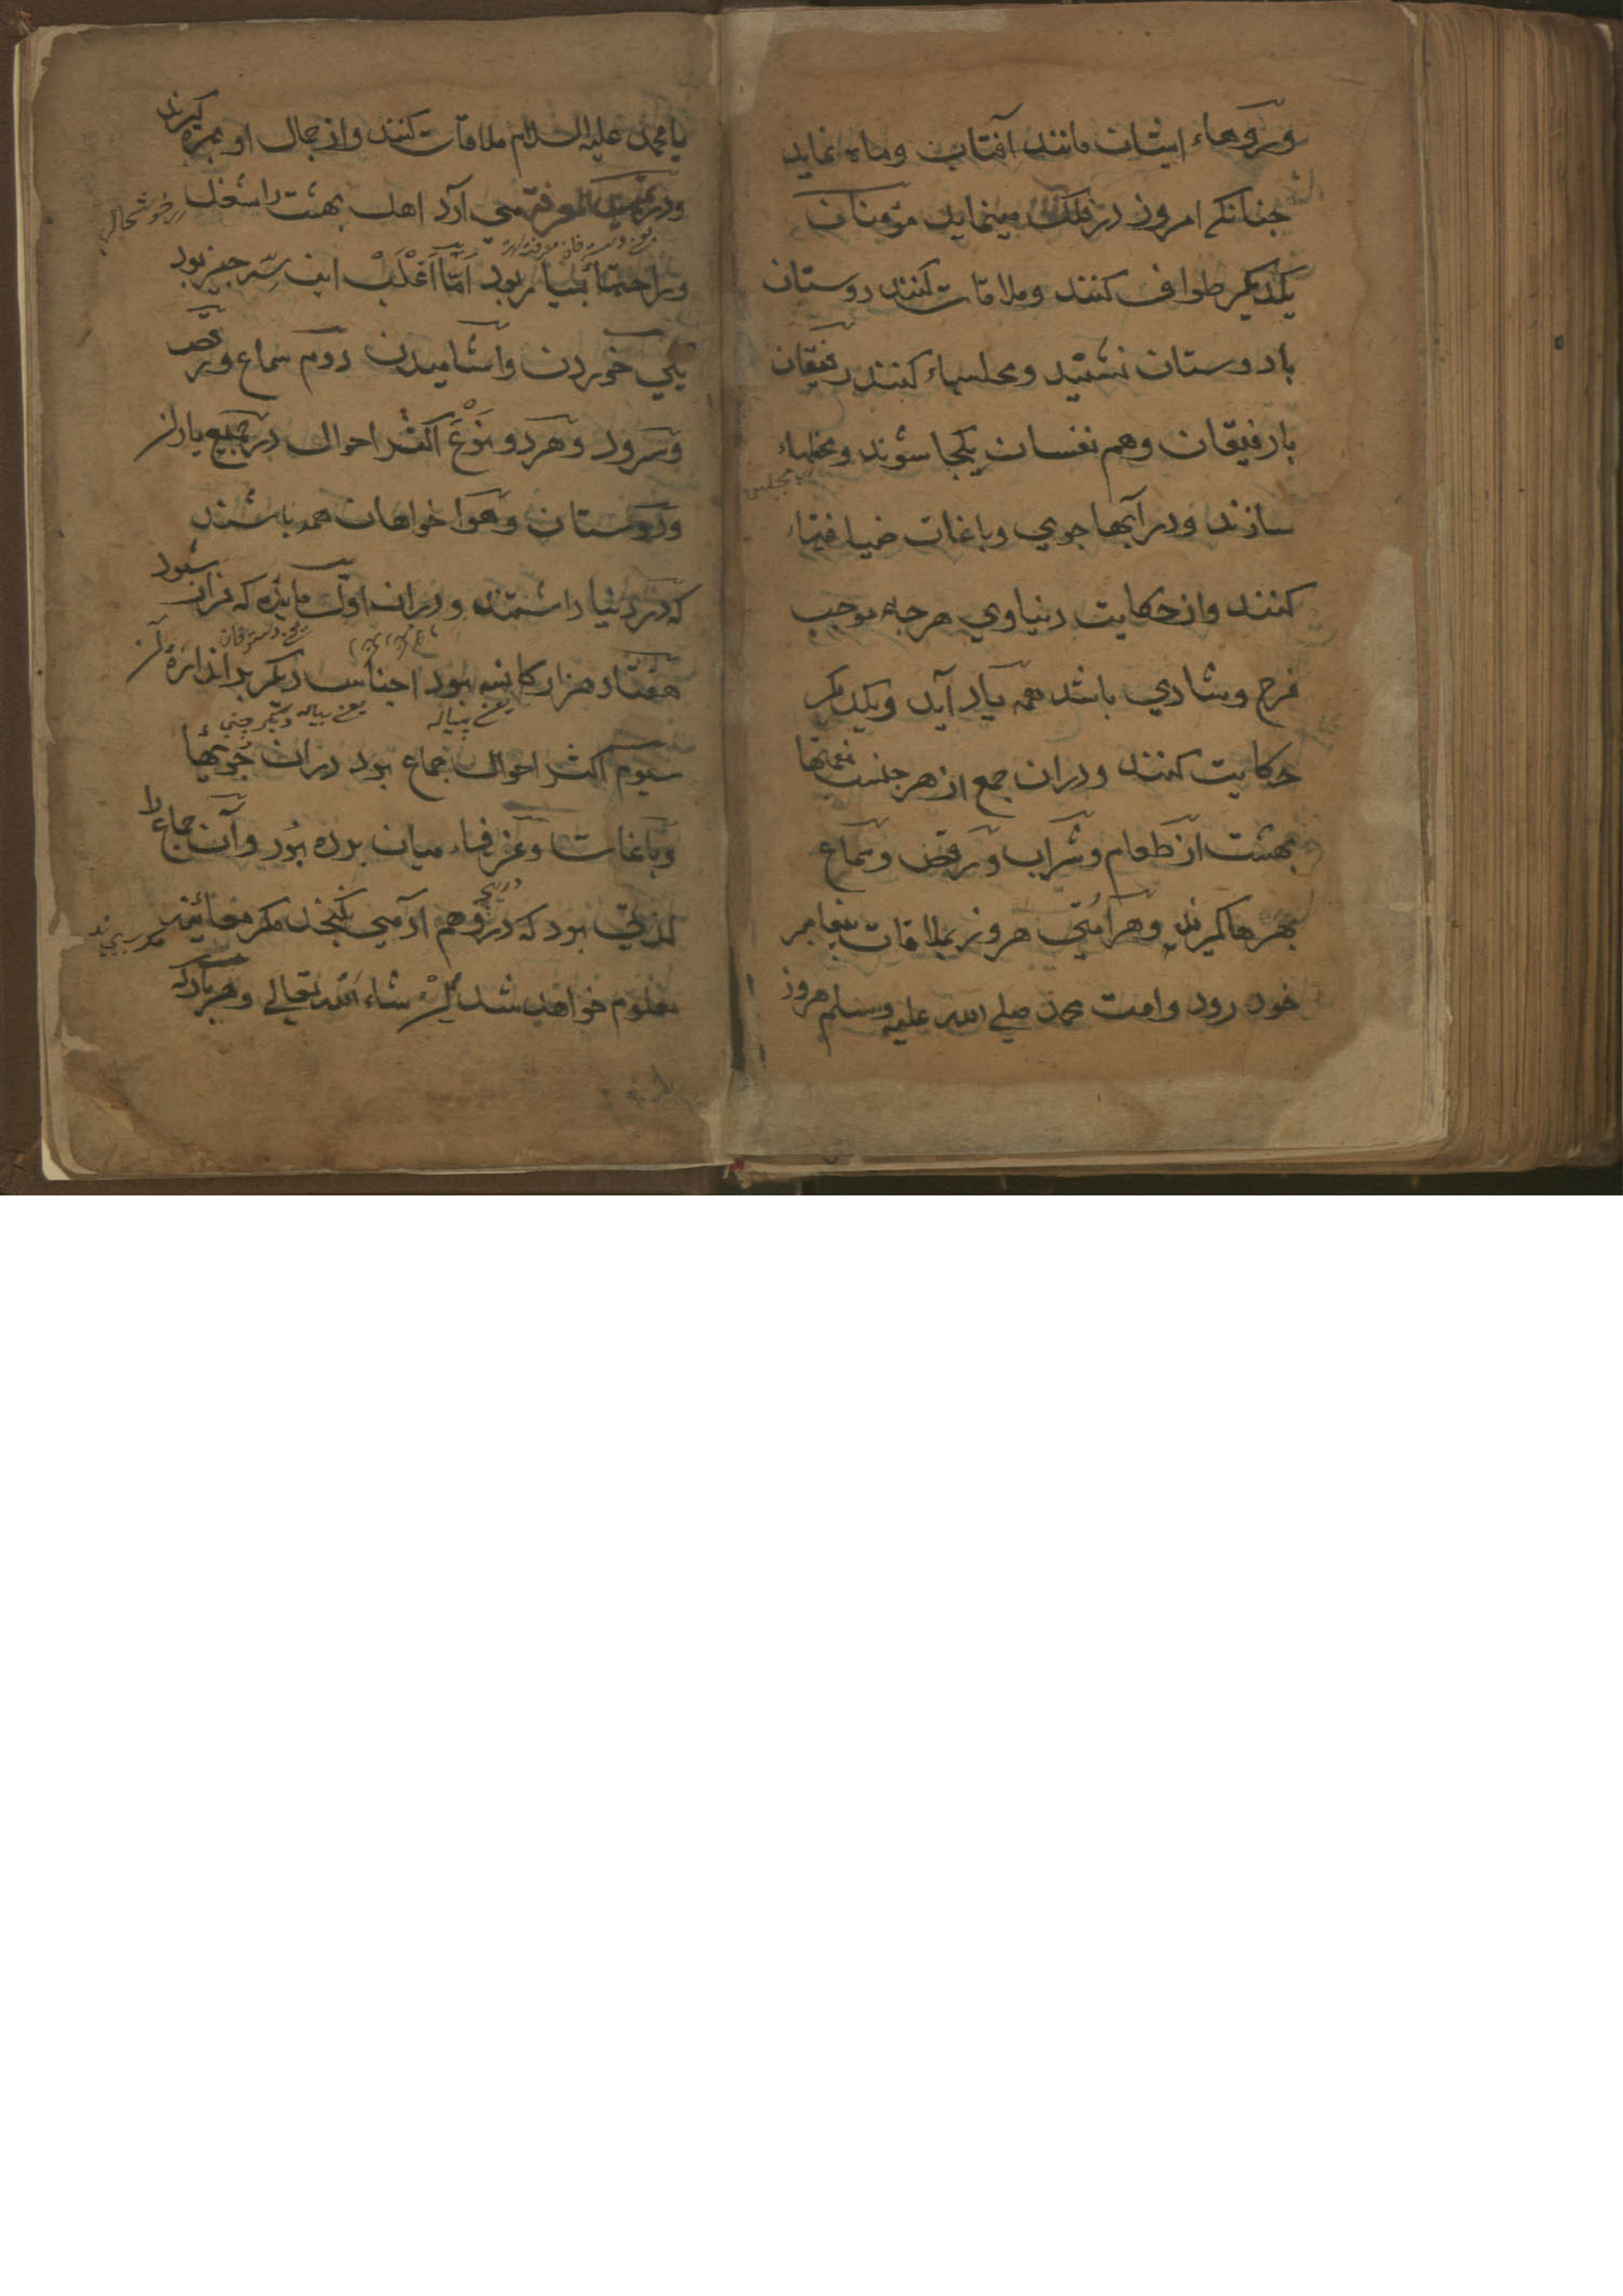 وروهاء ایشان مانند آفتاب وماه نماید
جنانکه امروز در فلک مینماید مؤمنان
یکدیکر طواف کنند وملاقات کنند دوستان
با دوستان نشیند ومجلسهاء کنند رفیقان
با رفیقان وهم نفسان یکجا شوند ومحلهاء
سازند ودر آبها جوي وباغات ضیافتهاء
کنند واز حکایت دنیاوي هرجه موجب
فرح وشادي باشد همه یاد آید ویکدیکر
حکایت کنند ودران جمع از هر جنس نعمتها
بهشت از طعام وشراب ورقص وسماع
بهرها کیرند وهر امتي هر روز بملاقات پیغامبر
خود رود وامت محمد صلي الله علیه وسلم هر روز
با محمد علیه السلام ملاقات کنند واز جمال او بهره کیرند
ودر آرد اهل بهشت را شغل خوشحال
وراحتها بسیار بود اما اغلب این سه جیز بود
یکي خوردن واشامیدن دوم سماع ورقص
وسرود وهر دو نوع اکثر احوال در جمیع یاران
ودوستان وهوا خواهان همه باشند
که در دنیا داشتند ودران اول مایده که بران شود
هفتاد هزار کاسه بود اجناس دیکر بر اندازه
یعنے پیاله یعنے پیاله دیکر چیني
سیوم اکثر احوال جماع بود دران جویها
وباغات وغرفهاء میان برده بود وآن جماع را
لذتي بود که در وهم ادمي نکنجد مکر معاینه
معلوم خواهد شد ان شاء الله تعالے وهر بار که